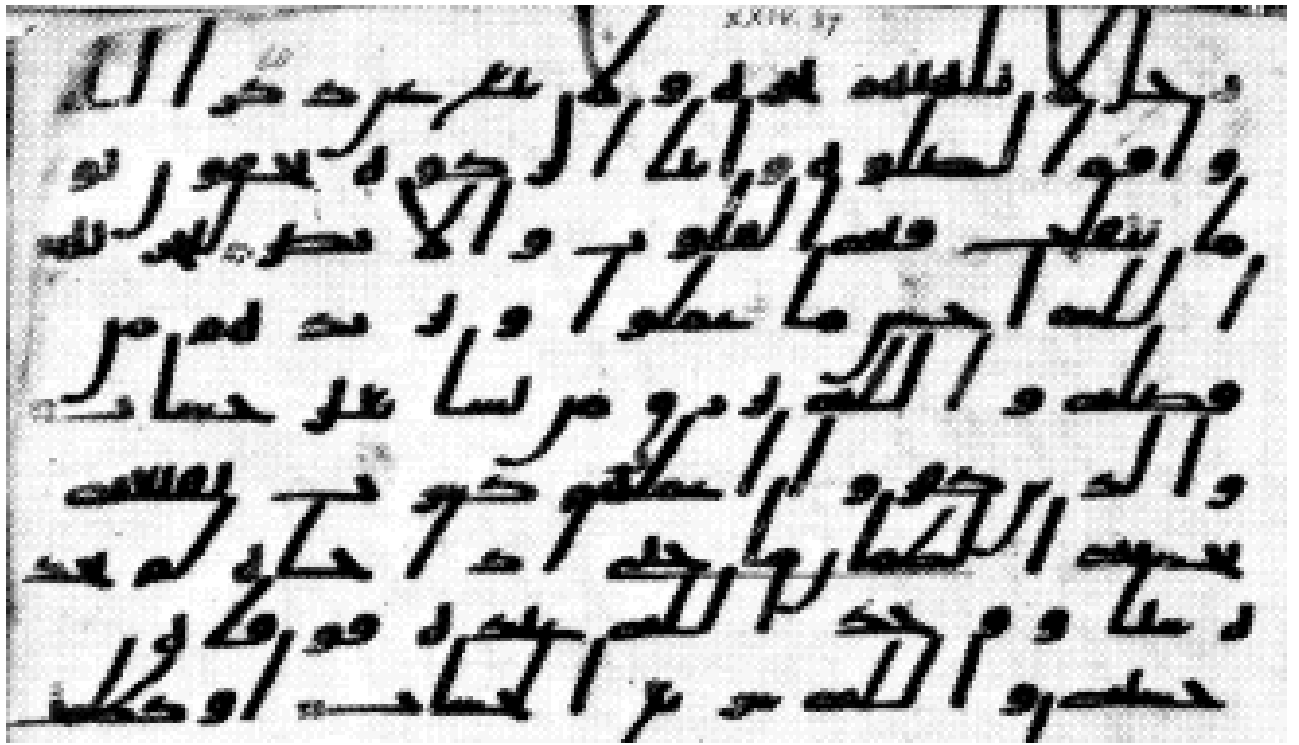 XXIV. 37
رجال لا تلهيهم تجرة ولا بيع عن ذكر الله
واقم الصلوة وايتا الزكوة يخفون يو
ما تتقلب فيه القلوب والابصر ليجزيهم
الله احسن ما عملوا ويزيدهم من
فضله والله يرزق من يشا بغير حساب
والذين كفروا اعملهم كسراب بقيعة
يحسبه الظمان ما حتى اذا جاه لم يجد
ه شيا ووجد الله عنده فوفيه
حسابه والله سريع الحساب او كظلمت